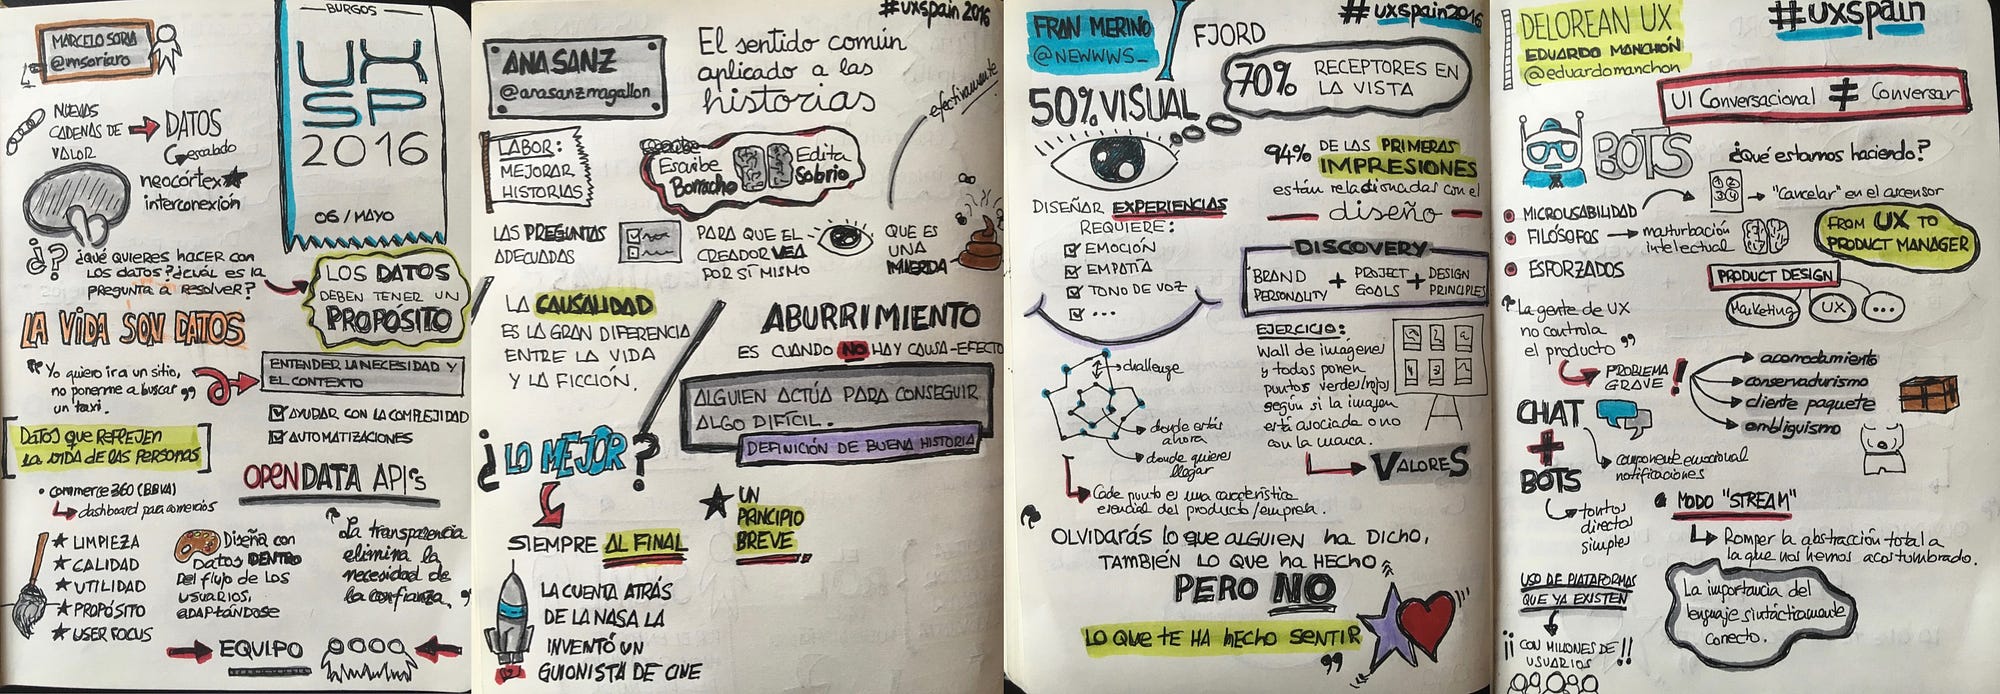 BURGOS
MARCELO SORIA
@msoriaro
UX
SP
2016
06/MAYO
NUEVAS
CADENAS DE
VALOR
DATOS
escalado
neocórtex
interconexión
¿? ¿qué quieres hacer con
los datos? ¿cuál es la
pregunta a resolver?
LOS DATOS
DEBEN TENER UN
PROPÓSITO
LA VIDA SON DATOS
"Yo quiero ir a un sitio,
no ponerme a buscar
un taxi."
ENTENDER LA NECESIDAD Y
EL CONTEXTO
AYUDAR CON LA COMPLEJIDAD
AUTOMATIZACIONES
DATOS QUE REFLEJEN
LA VIDA DE LAS PERSONAS
OPENDATA API's
• commerce 360 (BBVA)
dashboard para comercios
LIMPIEZA
CALIDAD
UTILIDAD
PROPÓSITO
USER FOCUS
Diseña con
Datos DENTRO
Del flujo de los
usuarios,
ADAPTÁNDOSE
"La transparencia
elimina la
necesidad de
la confianza."
EQUIPO
#uxspain 2016
ANA SANZ
@anasanzmagallon
El sentido común
aplicado a las
historias
efectivamente
LABOR:
MEJORAR
HISTORIAS
Escribe
Borracho
Edita
Sobrio
LAS PREGUNTAS
ADECUADAS
PARA QUE EL
CREADOR VEA
POR SÍ MISMO
QUE ES
UNA
MIERDA
LA CAUSALIDAD
ES LA GRAN DIFERENCIA
ENTRE LA VIDA
Y LA FICCIÓN.
ABURRIMIENTO
ES CUANDO NO HAY CAUSA-EFECTO
ALGUIEN ACTÚA PARA CONSEGUIR
ALGO DIFÍCIL.
DEFINICIÓN DE BUENA HISTORIA
¿LO MEJOR?
SIEMPRE AL FINAL
UN
PRINCIPIO
BREVE
LA CUENTA ATRÁS
DE LA NASA LA
INVENTÓ UN
GUIONISTA DE CINE
#uxspain2016
FRAN MERINO
@NEWWWS_
FJORD
70% RECEPTORES EN
LA VISTA
50% VISUAL
94% DE LAS PRIMERAS
IMPRESIONES
están relacionadas con el
diseño
DISEÑAR EXPERIENCIAS
REQUIERE:
EMOCIÓN
EMPATÍA
TONO DE VOZ
...
DISCOVERY
BRAND
PERSONALITY
+
PROJECT
GOALS
+
DESIGN
PRINCIPLES
EJERCICIO:
Wall de imágenes
y todos ponen
puntos verdes/rojos
según si la imagen
está asociada o no
con la marca.
VALORES
challenge
donde estás
ahora
donde quieres
llegar
Cada punto es una característica
esencial del producto/empresa.
"OLVIDARÁS lo que ALGUIEN ha DICHO,
TAMBIÉN LO QUE ha HECHO,
PERO NO
LO QUE TE HA HECHO SENTIR"
#uxspain
DELOREAN UX
EDUARDO MANCHÓN
@eduardomanchon
UI Conversacional ≠ Conversar
BOTS
¿Qué estamos haciendo?
MICROUSABILIDAD
1 2
3 4
"Cancelar" en el ascensor
FILÓSOFOS
masturbación
intelectual
ESFORZADOS
FROM UX TO
PRODUCT MANAGER
PRODUCT DESIGN
Marketing
UX
...
"La gente de UX
no controla
el producto"
PROBLEMA
GRAVE!
acomodamiento
conservadurismo
cliente paquete
ombliguismo
CHAT
+
BOTS
componente emocional
notificaciones
tontos
directos
simples
MODO "STREAM"
Romper la abstracción total a
la que nos hemos acostumbrado.
USO DE PLATAFORMAS
QUE YA EXISTEN
¡¡ CON MILLONES DE !!
USUARIOS
La importancia del
lenguaje sintácticamente
correcto.